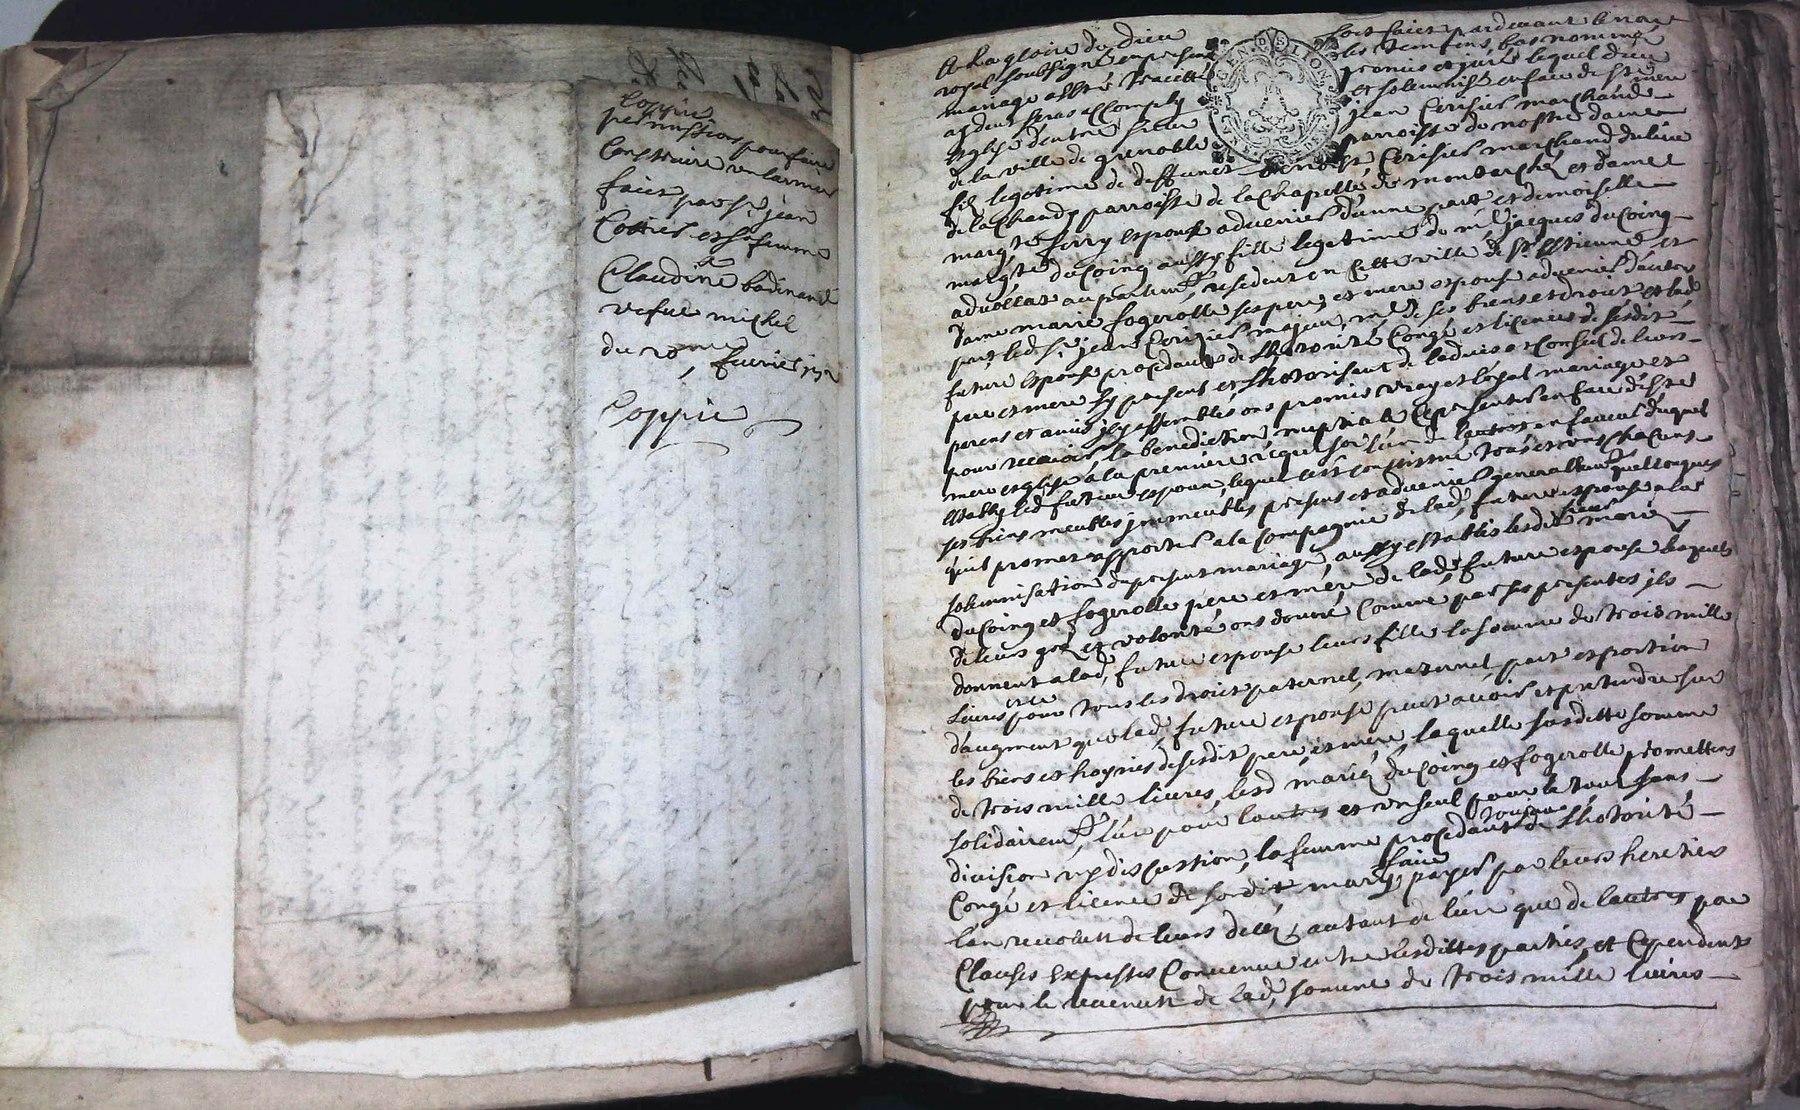 Coppie
permission pour faire
Construire un larmier
faict par Sr jean
Cottier et sa femme
Claudine badinand
vefue michel
du 20me feurier
Coppie
A La gloire de Dieu soit faict pardeuant le no.re
royal soubsigné en presence des temoins bas nommés
mariage a esté tracté promis et juré lequel dieu
aydant sera accomply et solemnisé en face de Ste mere
esglise d'entre sieur jean Cerisier marchand
de la ville de grenoble parroisse de nostre dame
filz legitime de deffunct Cerisier marchand du lieu
de la Chandy parroisse de la Chapelle de montarcher et dame
margte forry espoux aduenier d'une part et demoiselle
margte duCoing aussy fille legitime de me jacques duCoing
aduocat au parlemt, resident en Cette ville de St Estienne et
dame marie fogerolle ses pere et mere espouse aduenier d'autre
part led, Sr jean Cerizier majeur, me de ses biens et droict et lad
future espouse procedant de lhotorité Congé et licence de sesdit
pere et mere jcy presens et lhotorisant de laduis et Conseil de leurs
parens et amis jcy assemblés ons promis vray et loyal mariage et
pour receuoir la benediction nuptialle se presenter en face de Ste
mere esglise a la premiere requisition l'un de l'autre en faueur duquel
estably led, futeur espoux, lequel s'est constitué tous et uns chacuns
ses biens meubles jmmeubles presens et aduenier generallemt quelconques
quil promet apporter a la Compagnie de lad, future espouse a la
solemnisation du present mariage, aussy establis lesdit sieur mariés
duCoing et fogerolle pere et mere de lad, future espouse lesquels
de leurs gré et volonté ons donné Comme par ses presentes jls
donnent a lad, future espouse leurs fille la somme de trois mille
Liures et ce pour tous les droict paternel, maternel, part et portion
d'augment que lad, future espouse peut auoir et pretendre sur
les biens et hoyries de sesdit pere et mere, laquelle susditte somme
de trois mille liures, lesd mariés duCoing et fogerolle promettent
solidairemt, l'un pour l'autre et un seul pour le tout sans
division ny discussion, la femme procedant tousjours de lhotorité
Congé et licence de sondit mary, faire payer par leurs heretiers
l'an reuolut de leurs deces, autant de l'un que de l'autre par
Clauses expresses Conuenue entre lesdittes parties, et Cependant
pour le reuenu de lad, somme de trois mille liures